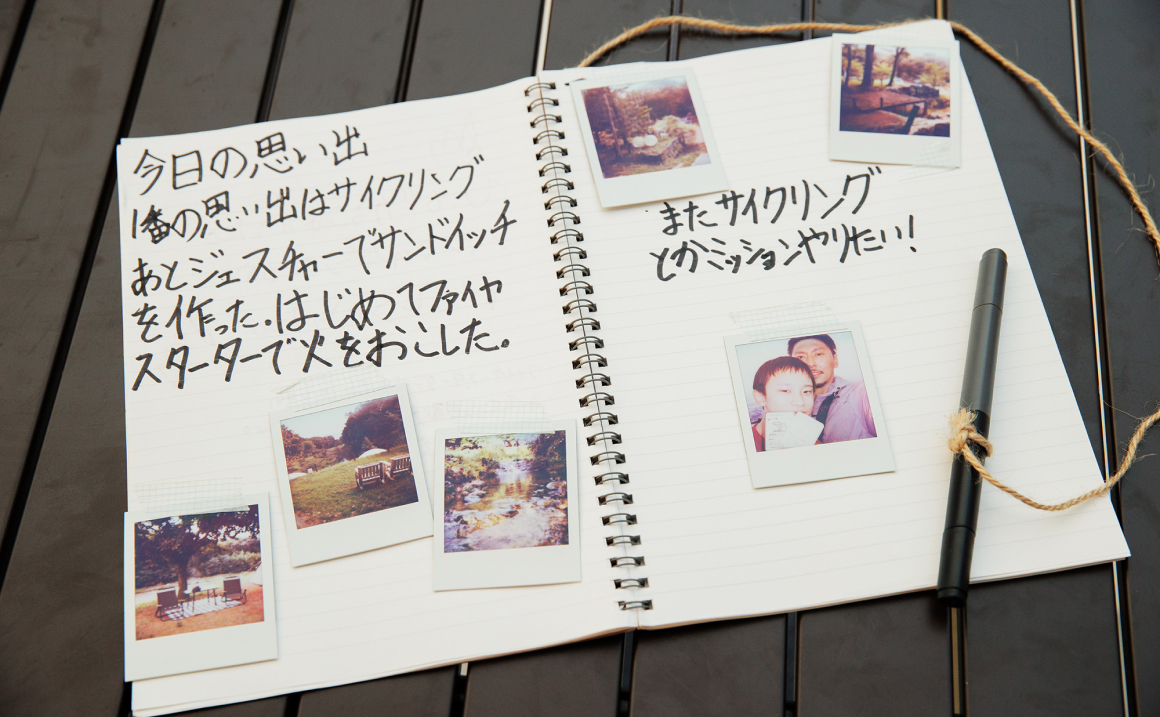 今日の思い出
1番の思い出はサイクリング
あとジェスチャーでサンドイッチ
を作った.はじめてファイヤ
スターターで火をおこした。
またサイクリング
とかミッションやりたい!